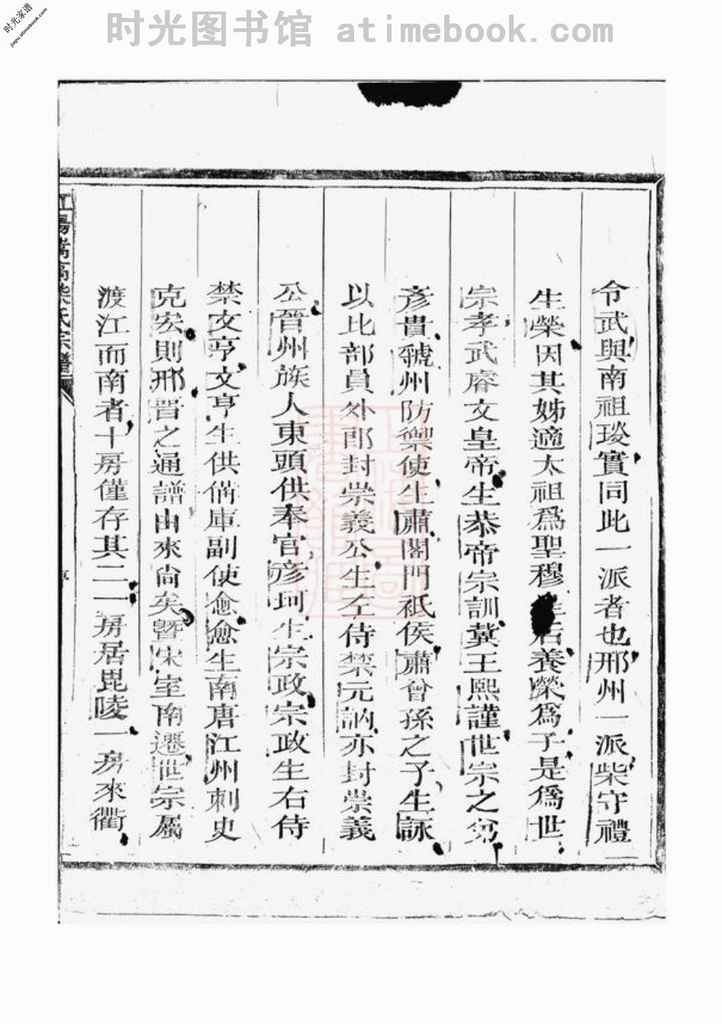 时光家谱
jiapu.atimebook.com
时光图书馆 atimebook.com
令武與南祖琰實同此一派者也邢州一派柴守禮
生榮因其姊適太祖爲聖穆后養榮爲子是爲世
宗孝武睿文皇帝生恭帝宗訓冀王熙謹世宗之
彥貴虢州防禦使生肅閣門祇侯肅曾孫之子生詠
以比部員外郎封崇義公生左侍禁元訥亦封崇義
公晉州族人東頭供奉官彥珂生宗政宗政生右侍
禁文亨文亨生供備庫副使愈愈生南唐江州刺史
克宏則邢晋之通譜由來尙矣曁宋室南遷世宗屬
渡江而南者十房僅存其二一房居毘陵一房來衢
江陽嵩高柴氏宗譜